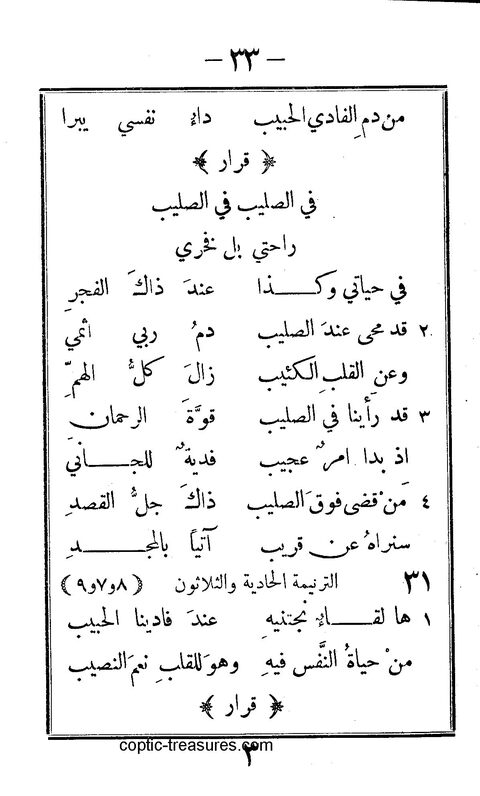 — ٣٣ —
من دمِ الفادي الحبيب داء نفسي يبرا
﴿ قرار ﴾
في الصليب في الصليب
راحتي بل فخري
في حياتي وكـــذا عندَ ذاكَ الفجرِ
٢ قد محى عندَ الصليب دمُ ربي اثمي
وعنِ القلبِ الكئيب زالَ كلُّ الهمِّ
٣ قد رأينا في الصليب قوَّةَ الرحمان
اذ بدا امرٌ عجيب فديةٌ للجـــاني
٤ مَنْ قضى فوقَ الصليب ذاكَ جلُّ القصدِ
سنراهُ عن قريب آتياً بالمجـــدِ
٣١ الترنيمة الحادية والثلاثون (٨و٧و٩)
١ ها لقـــاءٌ نجتنيهِ عندَ فادينا الحبيب
منْ حياةُ النَّفس فيهِ وهوَ للقلبِ نعمَ النصيب
﴿ قرار ﴾
٣
coptic-treasures.com